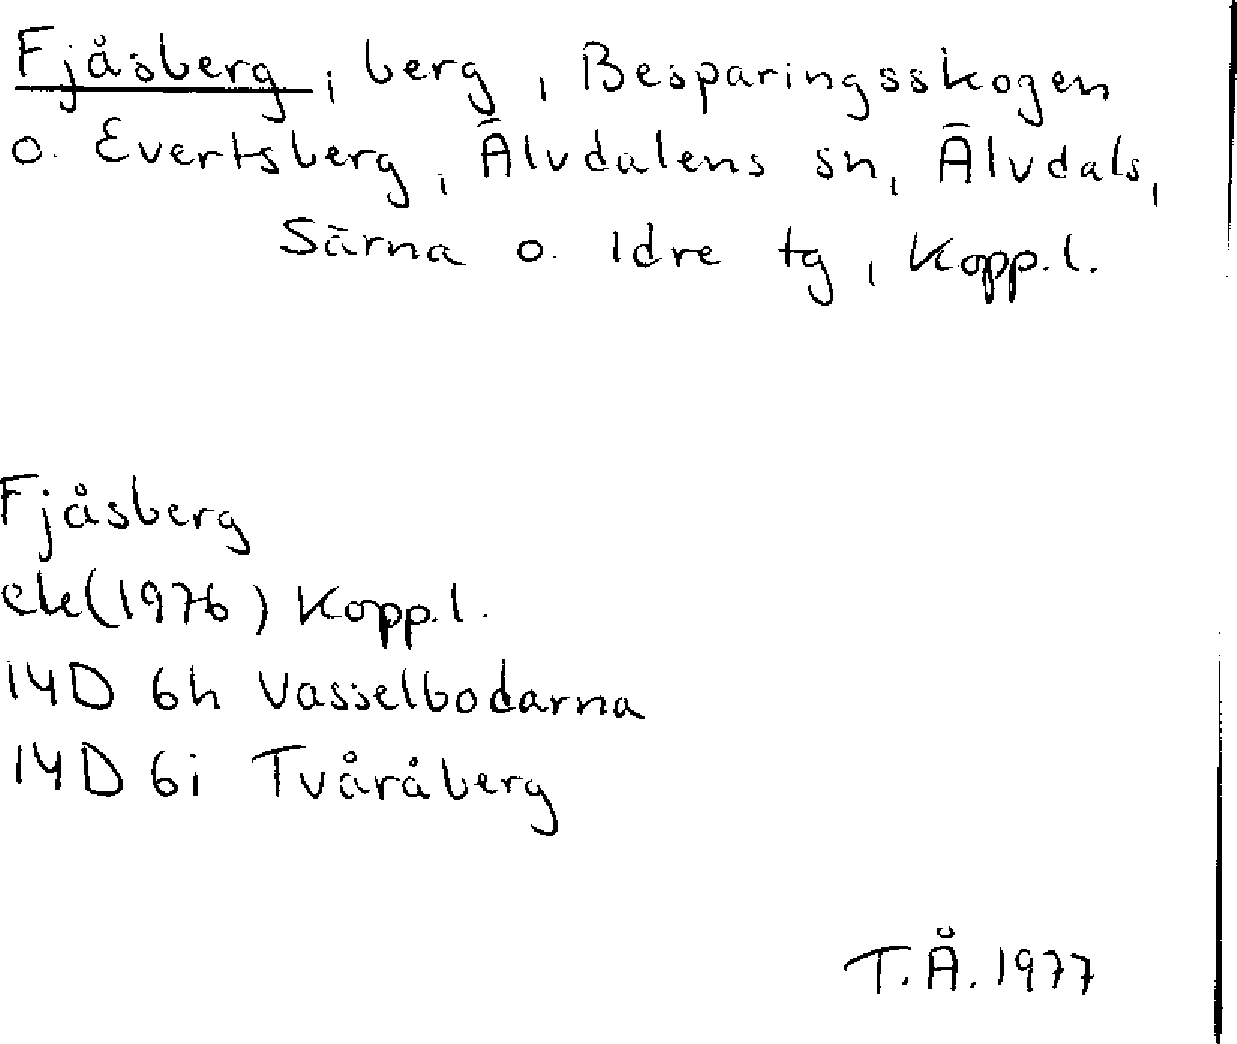 Fjåsberg, berg, Besparingsskogen
o. Evertsberg, Älvdalens sn, Älvdals,
Särna o. Idre tg, Kopp.l.
Fjåsberg
ek(1976) Kopp.l.
14D 6h Vasselbodarna
14D 6i Tvåråberg
T.Å. 1977